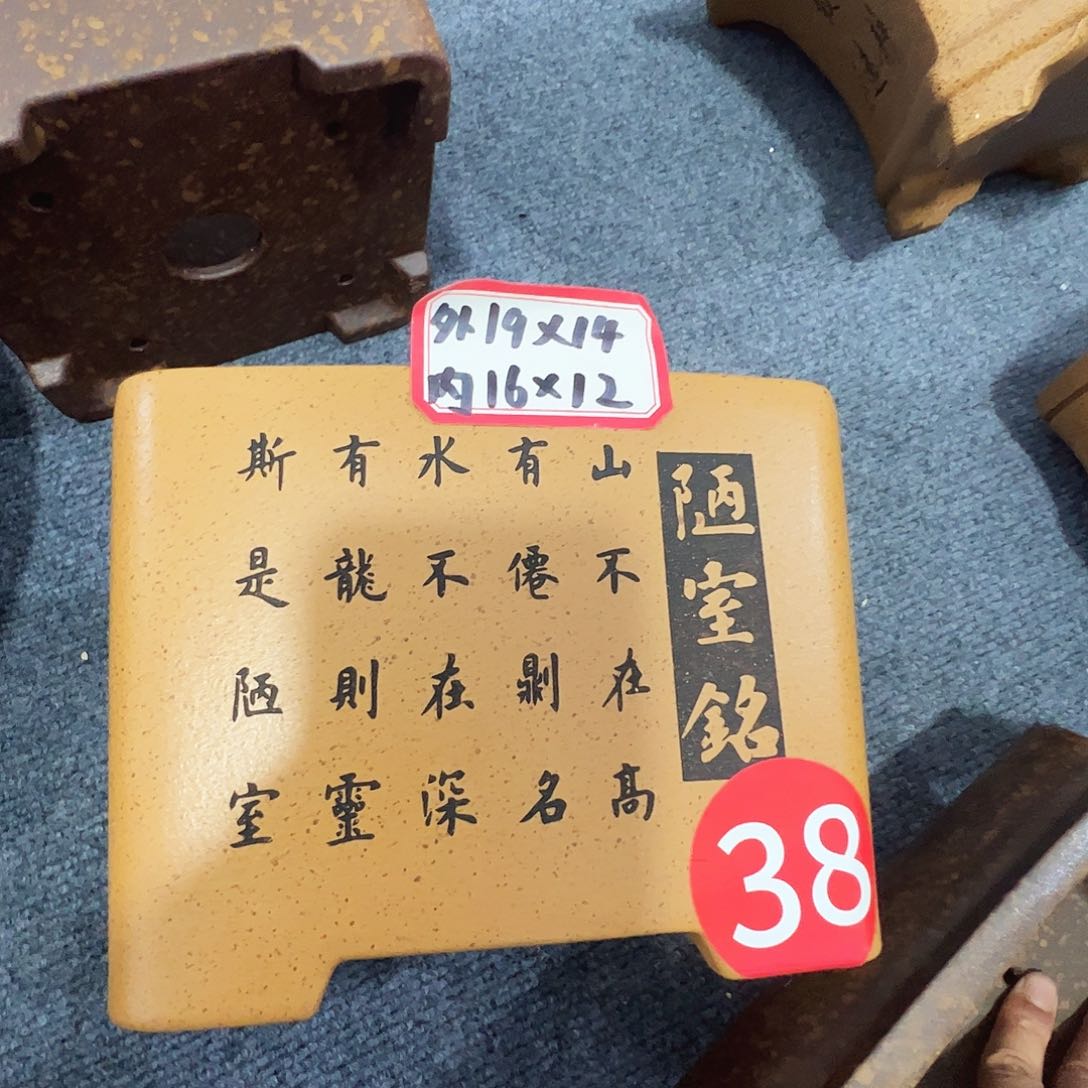 外19×14
内16×12
陋室銘
山不在高
有僊剿名
水不在深
有龍則靈
斯是陋室
38